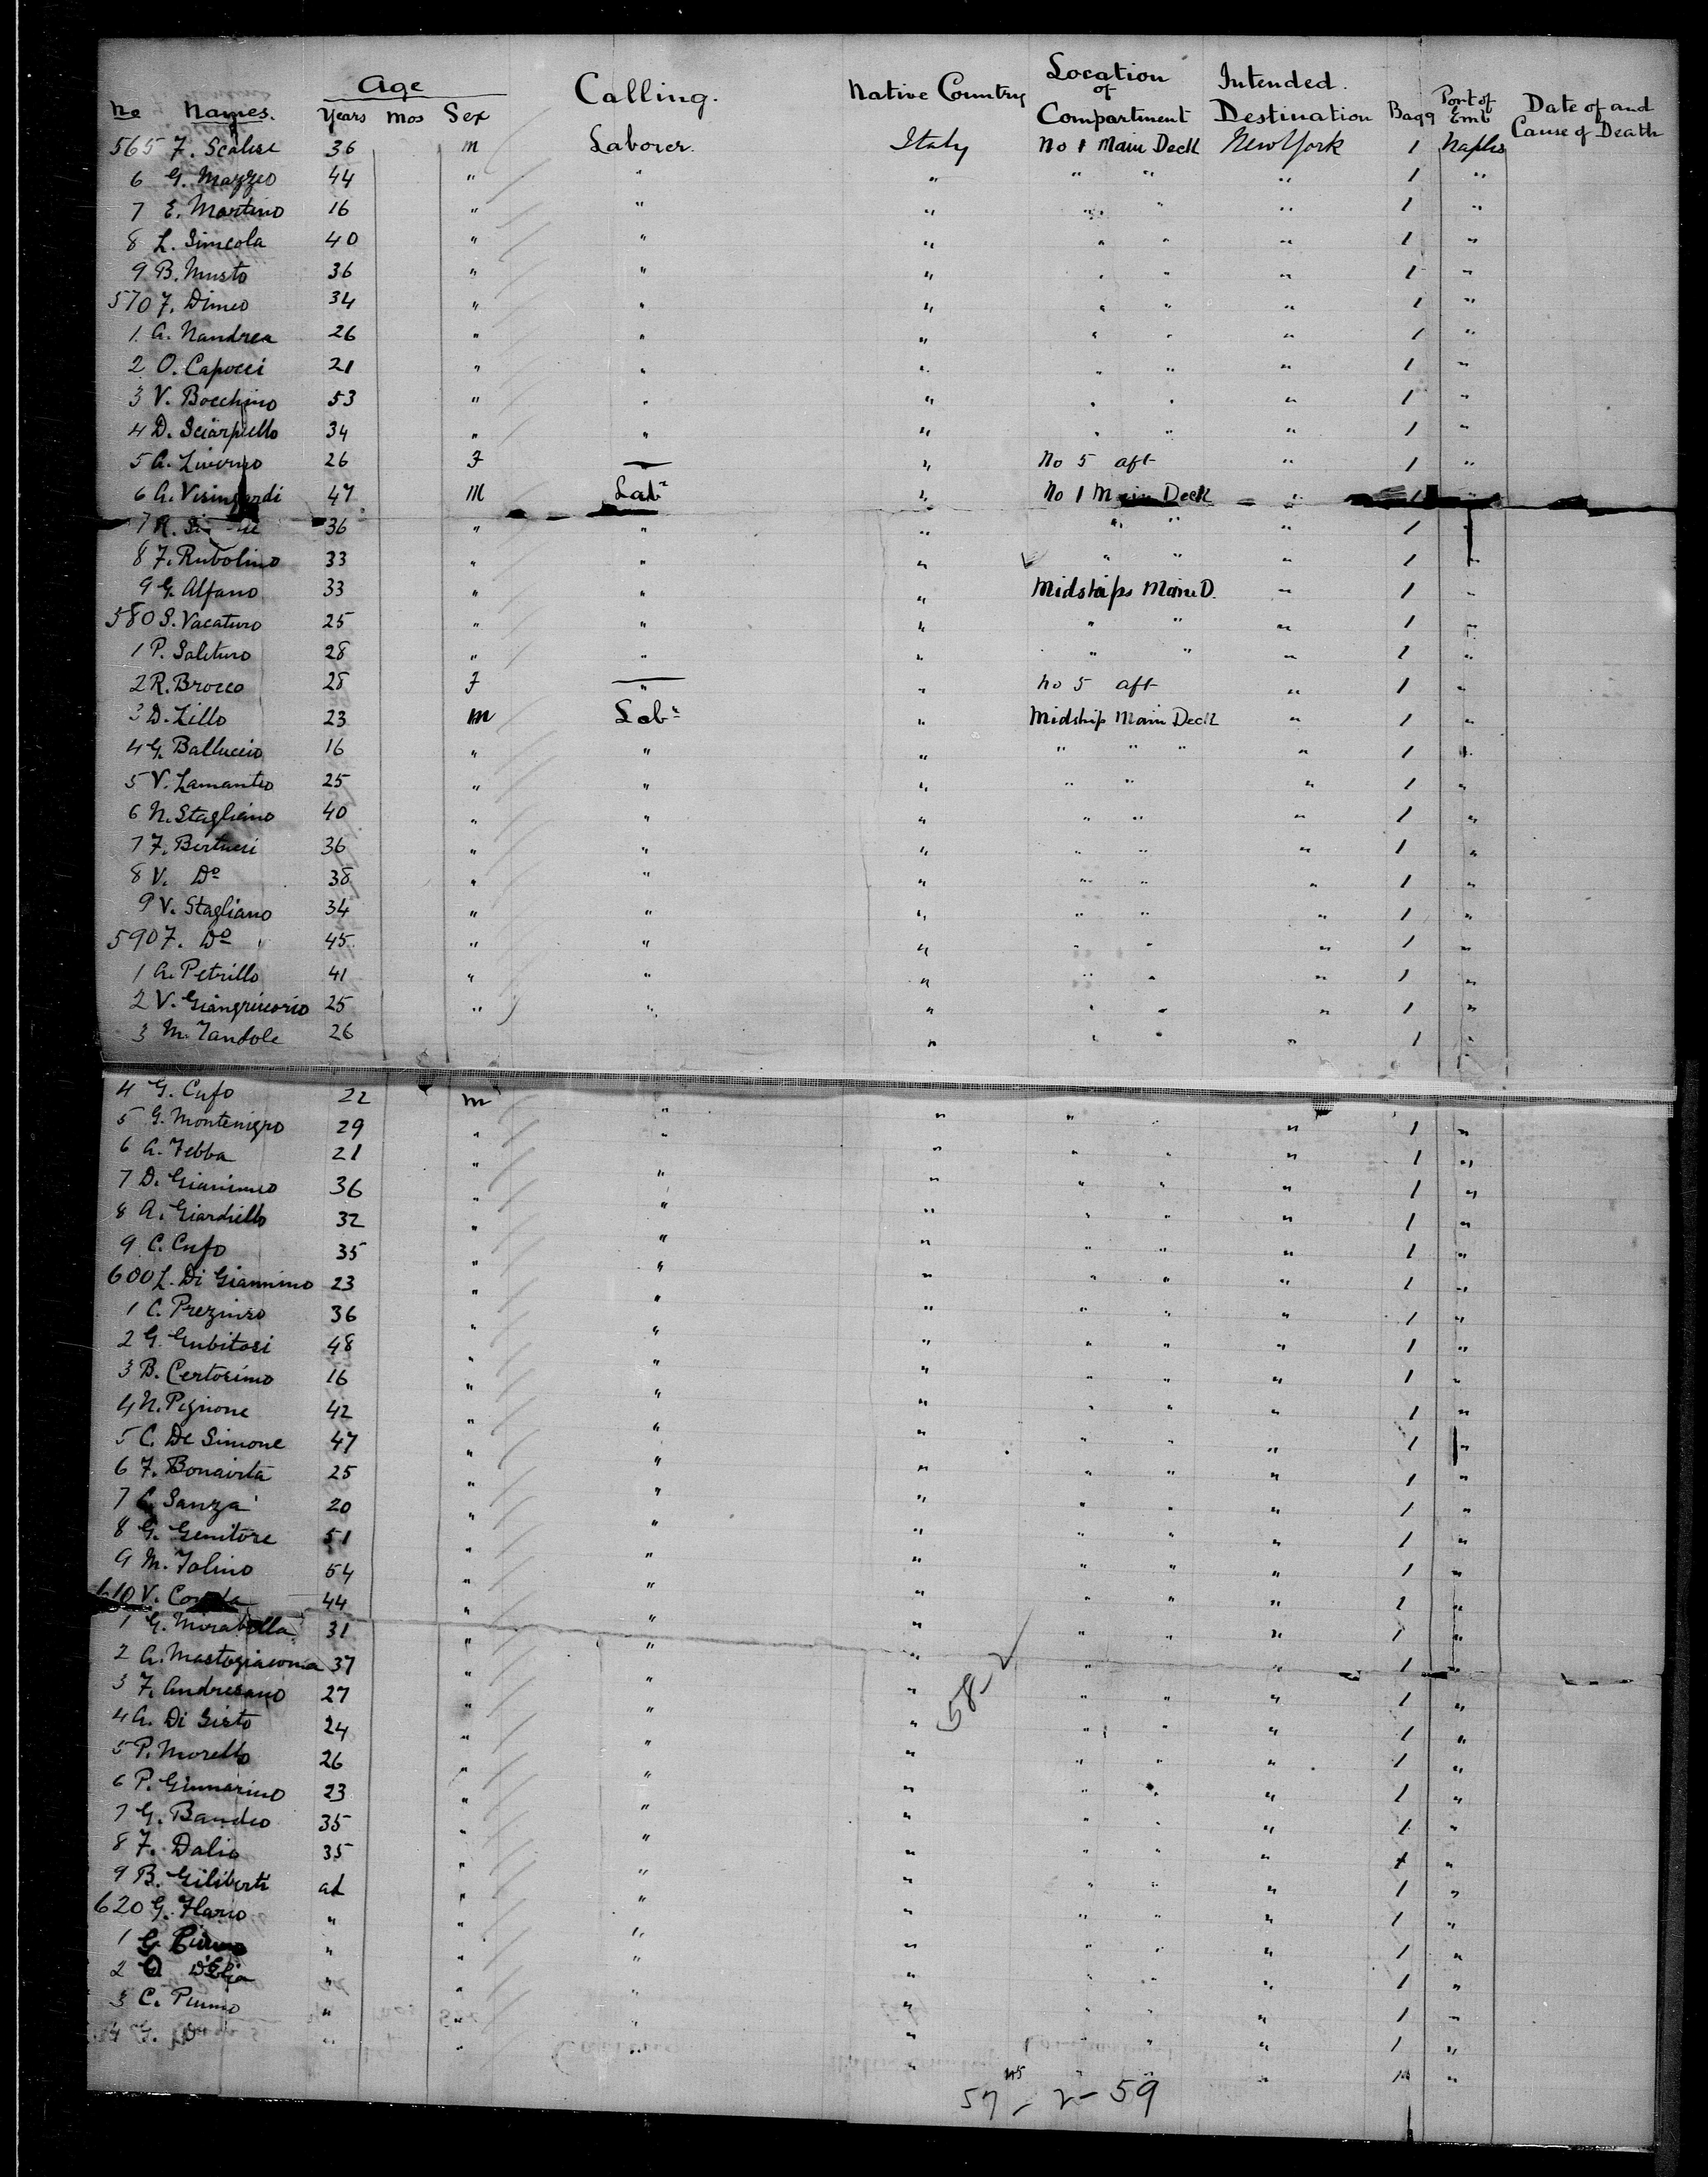 No Names. Age Years Mos Sex Calling. Native Country Location of Compartment Intended. Destination Bagg Port of Emb Date of and Cause of Death
565 F. Scalise 36 m Laborer. Italy No 1 Main Deck New York 1 Naples
6 G. Mazzeo 44 " " " " " " 1 "
7 E. Martino 16 " " " " " " 1 "
8 L. Simeola 40 " " " " " " 1 "
9 B. Musto 36 " " " " " " 1 "
570 F. Dimeo 34 " " " " " " 1 "
1 A. Nandrea 26 " " " " " " 1 "
2 O. Capocci 21 " " " " " " 1 "
3 V. Bocchino 53 " " " " " " 1 "
4 D. Sciarpiello 34 " " " " " " 1 "
5 A. Liverno 26 F — " No 5 aft " 1 "
6 A. 47 M Labr " No 1 Main Deck " 1 "
7 R. 36 " " " " " " 1 "
8 F. Rubolino 33 " " " " " " 1 "
9 G. Alfano 33 " " " Midships Main D. " 1 "
580 S. Vacaturo 25 " " " " " " 1 "
1 P. Salituro 28 " " " " " " 1 "
2 R. Brocco 28 F — " " No 5 aft " 1 "
3 D. Lillo 23 m Labr " Midship Main Deck " 1 "
4 G. Balluccio 16 " " " " " " " 1 "
5 V. Lamanteo 25 " " " " " " 1 "
6 N. Stagliano 40 " " " " " " 1 "
7 F. Bertucci 36 " " " " " " 1 "
8 V. Do 38 " " " " " " 1 "
9 V. Stagliano 34 " " " " " " 1 "
590 F. Do 45 " " " " " " 1 "
1 A. Petrillo 41 " " " " " " 1 "
2 V. Giangrieorio 25 " " " " " " 1 "
3 M. Iandole 26 " " " " 1 "
4 G. Cufo 22 m " " "
5 G. Montenigro 29 " " " " " " 1 "
6 A. Febba 21 " " " " " " 1 "
7 D. Giannineo 36 " " " " " " 1 "
8 A. Giardiello 32 " " " " " " 1 "
9 C. Cufo 35 " " " " " " 1 "
600 L. Di Giannino 23 " " " " " " 1 "
1 C. Prezioso 36 " " " " " " 1 "
2 G. Gubitosi 48 " " " " " " 1 "
3 B. Certosimo 16 " " " " " " 1 "
4 N. Pignone 42 " " " " " " 1 "
5 C. De Simone 47 " " " " " " 1 "
6 F. Bonavita 25 " " " " " " 1 "
7 C. Sanza 20 " " " " " " 1 "
8 G. Genitore 51 " " " " " " 1 "
9 M. Iolino 54 " " " " " " 1 "
610 V. 44 " " " " " " 1 "
1 G. Mirabella 31 " " " " " " 1 "
2 A. Mastogiacoma 37 " " " " " " 1 "
3 F. Andresano 27 " " " " " " 1 "
4 A. Di Sisto 24 " " " " " " 1 "
58-2
5 P. Morello 26 " " " " " " 1 "
6 P. Gennarino 23 " " " " " " 1 "
7 G. Bandeo 35 " " " " " " 1 "
8 F. Dalio 35 " " " " " " 1 "
9 B. Giliberti ad " " " " " " 1 "
620 G. Ilario " " " " " " " 1 "
1 G. " " " " " " " 1 "
2 D'Elia " " " " " " " 1 "
3 C. Piumo " " " " " " " 1 "
4 G. " " " " " " " 1 "
57 - 2 - 59